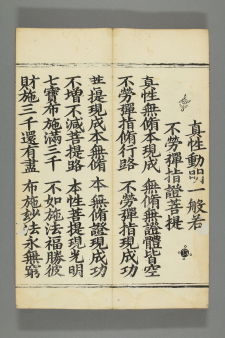 真性動品一般若
不勞彈指證菩提
真性無脩本現成 無脩無證體皆空
不勞彈指脩行路 不勞彈指現成功
菩提現成本無脩 本無脩證現成功
不增不減菩提路 本性菩提現光明
七寶布施滿三千 不如施法福勝彼
財施三千還有盡 布施妙法永無窮